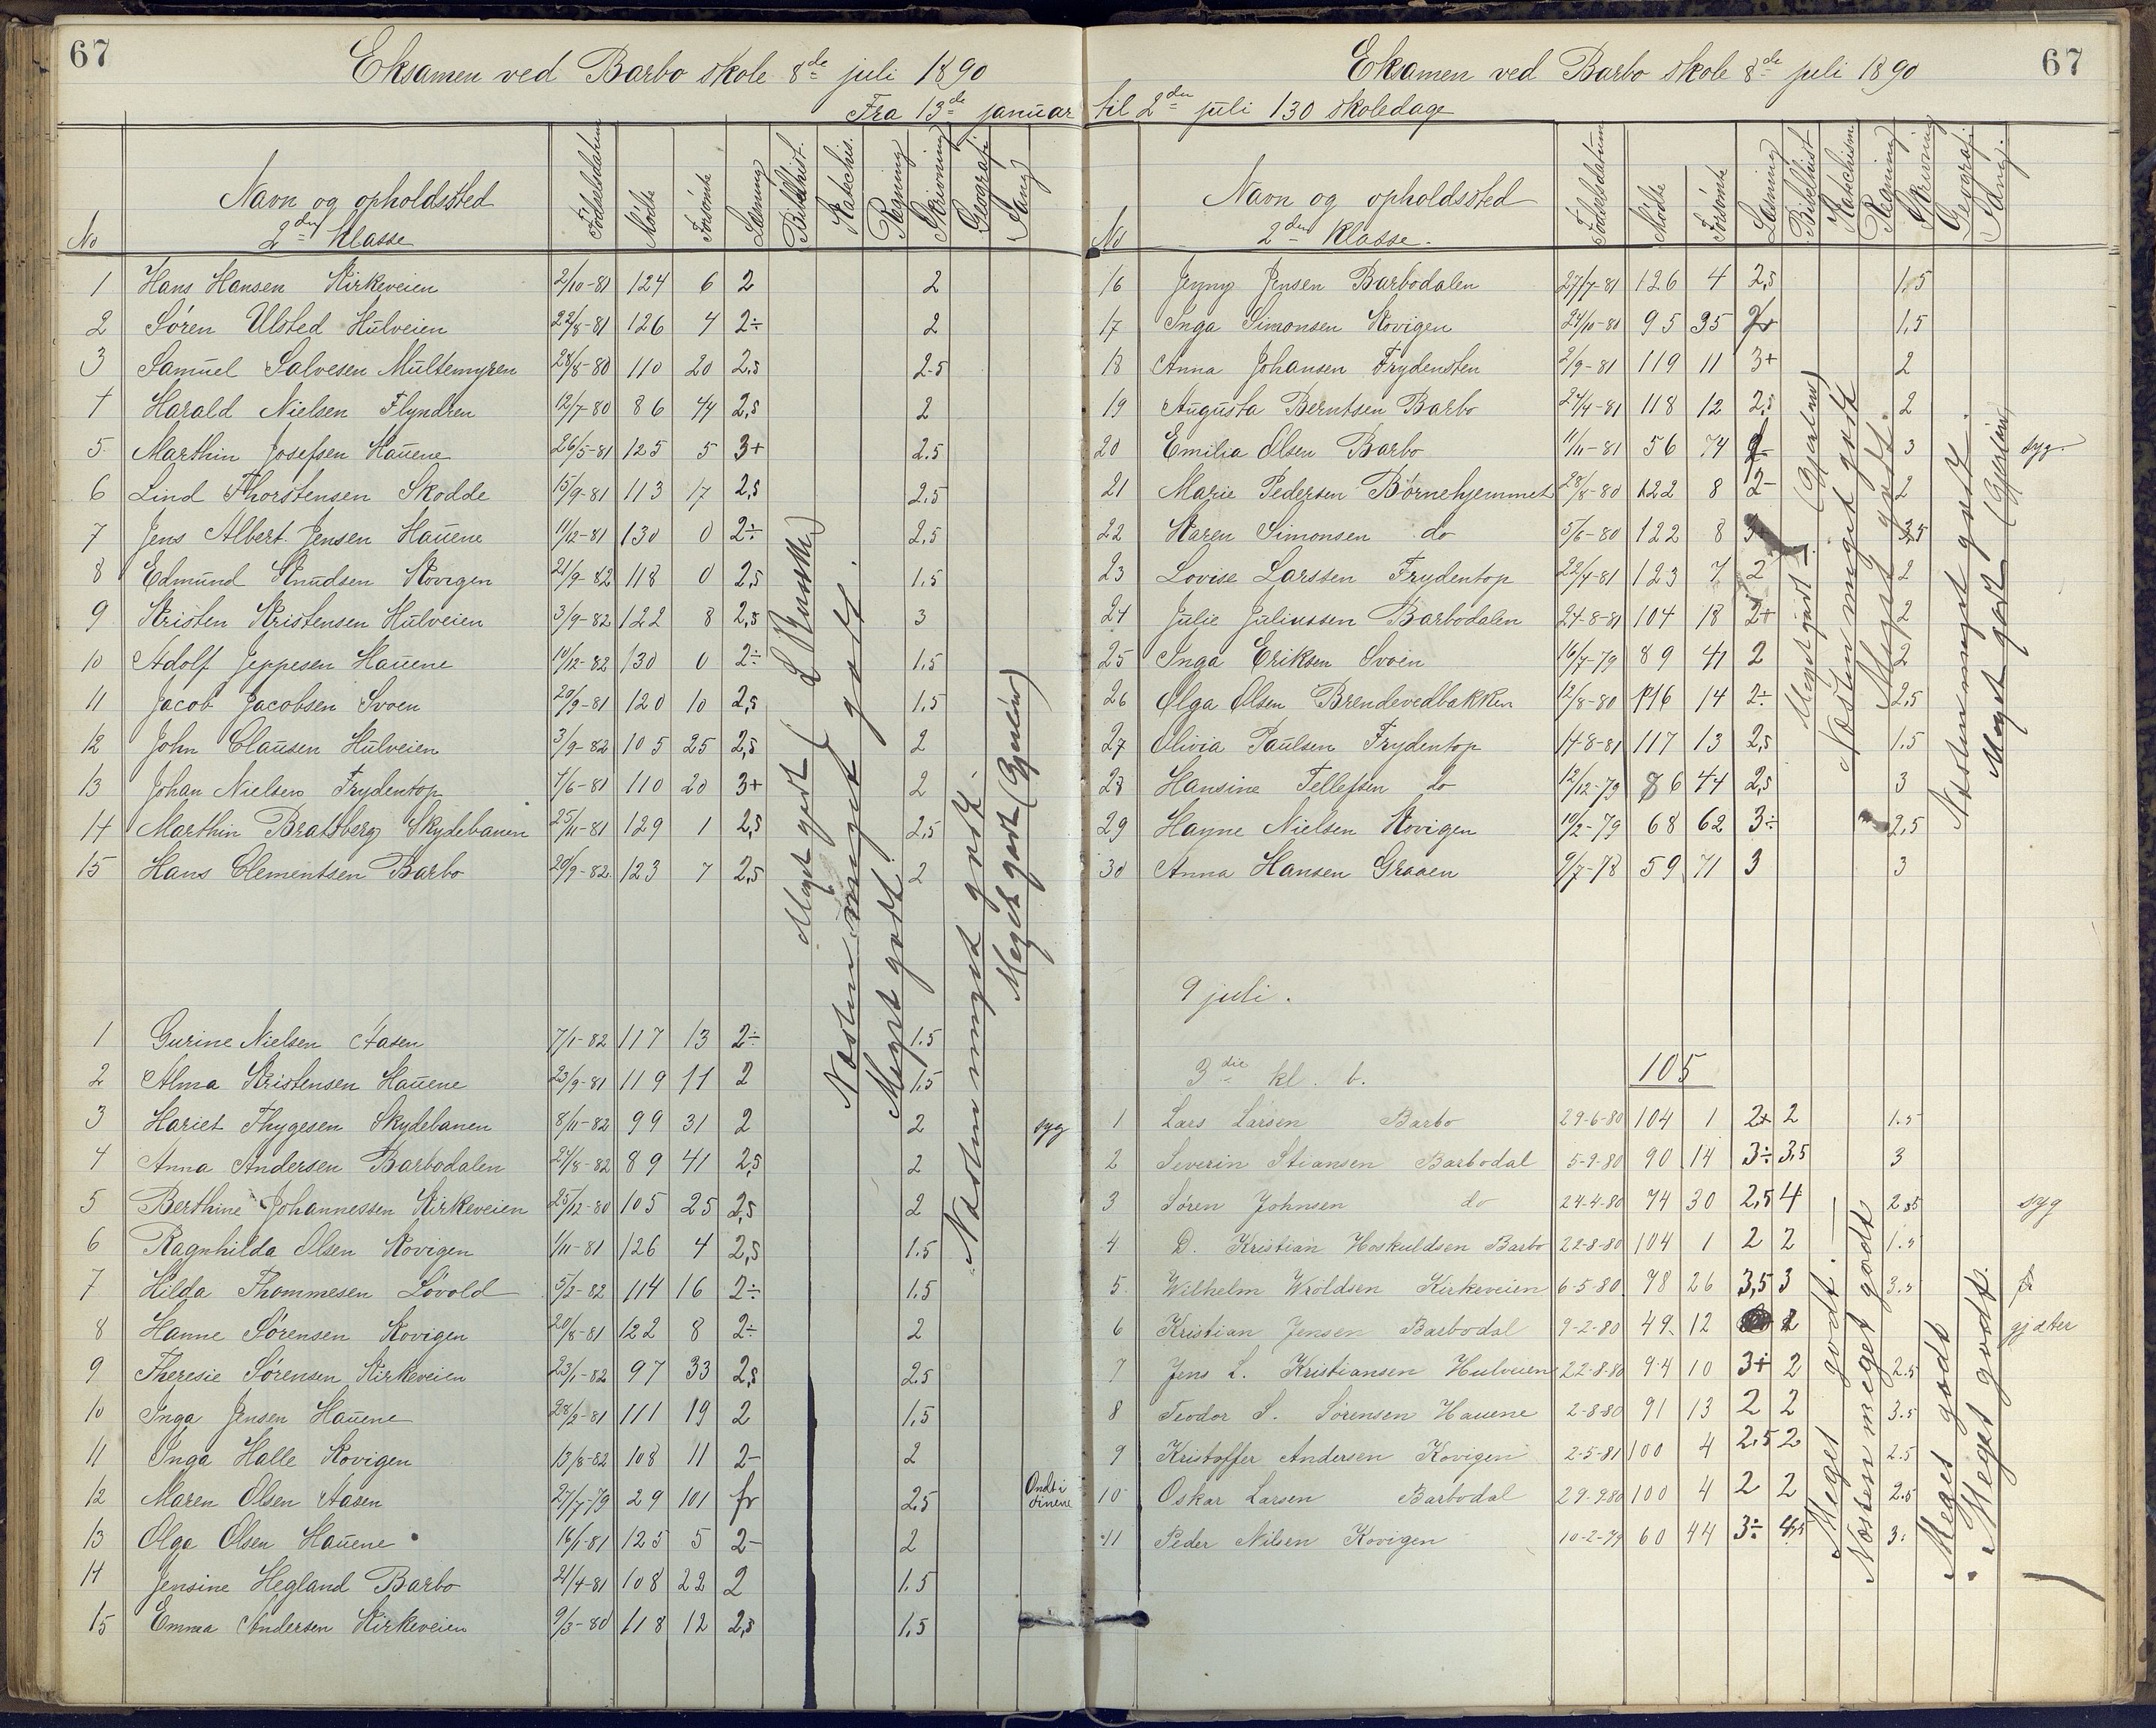 67
Eksamen ved Barbo skole 8de juli 1890
Fra 13de januar
No Navn og opholdssted Fødselsdatum Mødte Forsømte Læsning Bibelhist. Katechis. Regning Skrivning Geografi Sang
2den Klasse
1 Hans Hansen Kirkeveien 2/10-81 124 6 2 2
2 Søren Ulsted Hulveien 22/8-81 126 4 2÷ 2
3 Samuel Salvesen Multemyren 28/8-80 110 20 2,5 2.5
4 Harald Nielsen Flyndren 12/7-80 86 44 2,5 2
5 Marthin Josefsen Hauene 26/5-81 125 5 3+ 2.5
6 Lind Thorstensen Skodde 15/9-81 113 17 2,5 2,5
7 Jens Albert Jensen Hauene 11/12-81 130 0 2÷ 2,5
8 Edmund Knudsen Kovigen 21/9-82 118 0 2,5 1.5
9 Kristen Kristensen Hulveien 3/9-82 122 8 2,5 3
10 Adolf Jeppesen Hauene 10/12-82 130 0 2÷ 1.5
11 Jacob Jacobsen Svoen 20/9-81 120 10 2,5 1.5
12 John Clausen Hulveien 3/9-82 105 25 2,5 2
13 Johan Nielsen Frydentop 4/6-81 110 20 3+ 2
14 Marthin Bratsberg Skydebanen 25/11-81 129 1 2,5 2,5
15 Hans Clementsen Barbo 20/9-82 123 7 2,5 2
Meget godt
Næsten meget godt.
Meget godt.
Næsten meget godt.
Meget godt
1 Gurine Nielsen Aasen 7/1-82 117 13 2÷ 1.5
2 Alma Kristensen Hauene 23/9-81 119 11 2 1.5
3 Hariet Thygesen Skydebanen 8/11-82 99 31 2 2 syg
4 Anna Andersen Barbodalen 24/8-82 89 41 2,5 2
5 Berthine Johannessen Kirkeveien 25/12-80 105 25 2,5 2
6 Ragnhilda Olsen Kovigen 1/11-81 126 4 2,5 1.5
7 Hilda Thommesen Løvold 5/2-82 114 16 2÷ 1.5
8 Hanne Sørensen Kovigen 20/8-81 122 8 2÷ 2
9 Theresie Sørensen Kirkeveien 23/1-82 97 33 2,5 2.5
10 Inga Jensen Hauene 28/2-81 111 19 2 1,5
11 Inga Halle Kovigen 13/8-82 108 11 2- 2
12 Maren Olsen Aasen 27/7-79 29 101 fr 2.5 Ondt i Øinene
13 Olga Olsen Hauene 16/1-81 125 5 2- 2
14 Jensine Hegland Barbo 21/4-81 108 22 2 1.5
15 Emma Andersen Kirkeveien 9/3-80 118 12 2,5 1,5
67
Eksamen ved Barbo skole 8de juli 1890
til 2den juli 130 skoledage
No Navn og opholdssted Fødselsdatum Mødte Forsømte Læsning Bibelhist Katechism. Regning Skrivning Geografi Sang.
2den Klasse.
16 Jenny Jensen Barbodalen 27/7-81 126 4 2,5 1.5
17 Inga Simonsen Kovigen 24/10-80 95 35 1,5
18 Anna Johansen Frydensten 2/9-81 119 11 3+ 2
19 Augusta Berntsen Barbo 24/4-81 118 12 2,5 2
20 Emilia Olsen Barbo 11/11-81 56 74 3 syg.
21 Marie Pedersen Børnehjemmet 28/8-80 122 8 2- 2
22 Karen Simonsen do 5/6-80 122 8 3
23 Lovise Larssen Frydentop 22/4-81 123 7 2 2
24 Julie Juliussen Barbodalen 24-8-81 104 18 2+ 2
25 Inga Eriksen Svoen 16/7-79 89 41 2 2
26 Olga Olsen Brendevedbakken 12/8-80 116 14 2÷ 2,5
27 Olivia Paulsen Frydentop 14-8-81 117 13 2,5 1.5
28 Hansine Tellefsen do 12/12-79 86 44 2,5 3
29 Hanne Nielsen Kovigen 10/2-79 68 62 3÷ 2,5
30 Anna Hansen Graaen 9/7-78 59 71 3 3
Meget godt
Næsten meget godt
Meget godt.
Næsten meget godt.
Meget godt
9 juli.
3die kl. b. 105
1 Lars Larsen Barbo 29-6-80 104 1 2+ 2 1.5
2 Severin Stiansen Barbodal 5-9-80 90 14 3÷ 3,5 3
3 Søren Johnsen do 24-4-80 74 30 2,5 4 syg
4 D. Kristian Hoskuldsen Barbo 22-8-80 104 1 2 2 1.5
5 Wilhelm Wroldsen Kirkeveien 6-5-80 78 26 3,5 3 3.5
6 Kristian Jensen Barbodal 9-2-80 49 12 2 gjæter
7 Jens L. Kristiansen Hulveien 22-8-80 94 10 3+ 2 2.5
8 Teodor S. Sørensen Hauene 2-8-80 91 13 2 2 3.5
9 Kristoffer Andersen Kovigen 2-5-81 100 4 2,5 2 2.5
10 Oskar Larsen Barbodal 29-9-80 100 4 2 2 2.5
11 Peder Nilsen Kovigen 10-2-79 60 44 3÷ 4,5 3
Meget godt.
Næsten meget godt
Meget godt
Meget godt.